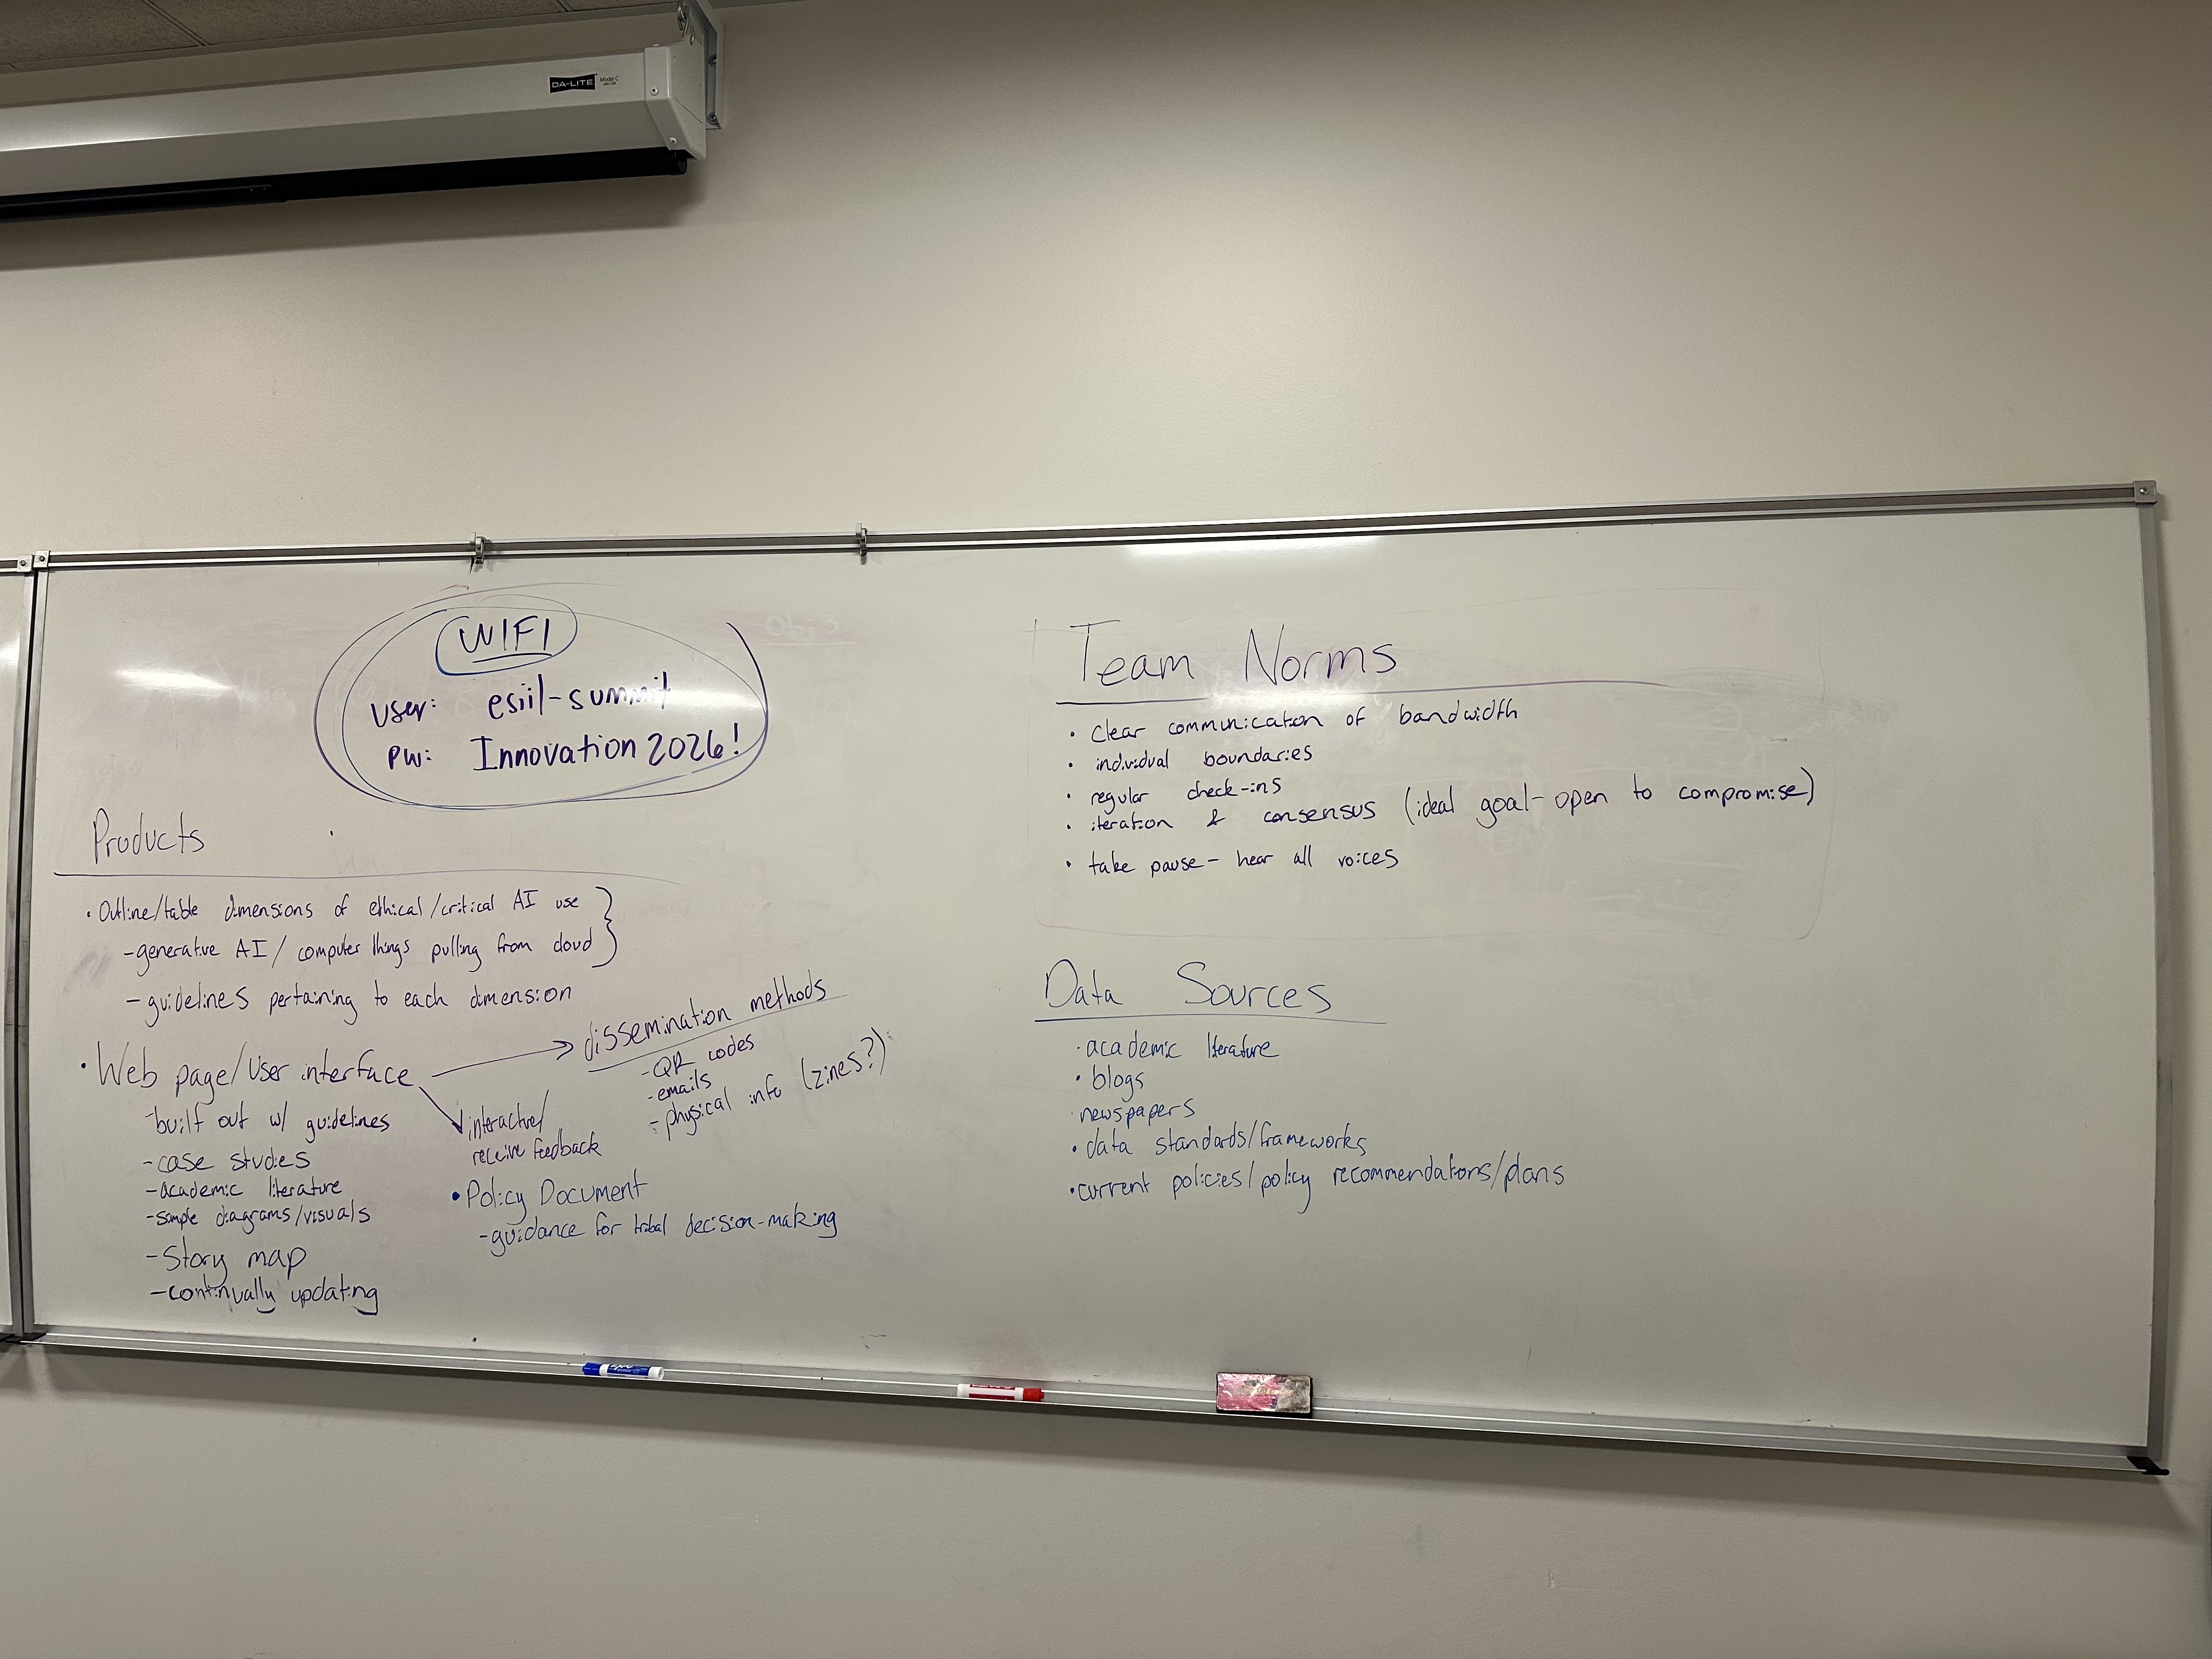 DA-LITE
Model C
WIFI
user: esiil-summit
pw: Innovation 2026!
Products
• Outline/table dimensions of ethical/critical AI use
- generative AI / computer things pulling from cloud
- guidelines pertaining to each dimension
• Web page/User interface
- built out w/ guidelines
- case studies
- academic literature
- sample diagrams/visuals
- Story map
- continually updating
dissemination methods
- QR codes
- emails
- physical info (zines?)
interactive/
receive feedback
• Policy Document
- guidance for tribal decision-making
Team Norms
• clear communication of bandwidth
• individual boundaries
• regular check-ins
• iteration & consensus (ideal goal - open to compromise)
• take pause - hear all voices
Data Sources
• academic literature
• blogs
• newspapers
• data standards/frameworks
• current policies/policy recommendations/plans